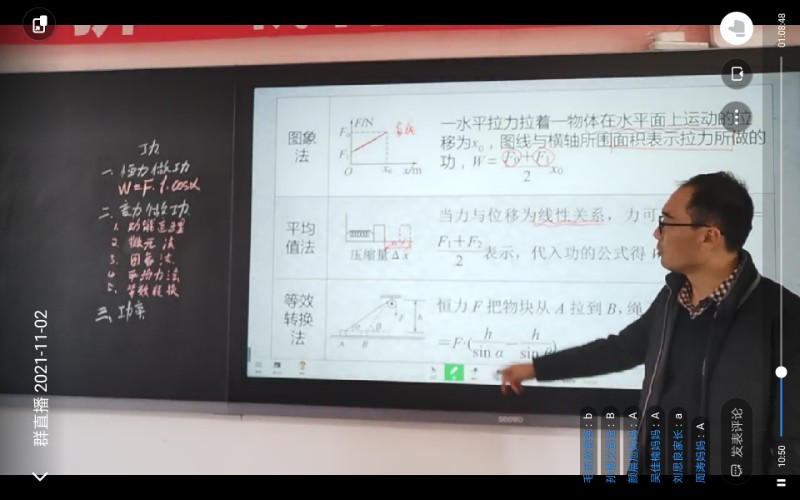 功
一、恒力做功
W=F·l·cosα
二、变力做功
1. 动能定理
2. 微元法
3. 图象法
4. 平均力法
5. 等效转换
三、功率
图象法
F/N
F₀
F₁
O
x₀
x/m
一水平拉力拉着一物体在水平面上运动的位
移为x₀，图线与横轴所围面积表示拉力所做的
功，W=(F₀+F₁)/2 x₀
平均值法
压缩量Δx
当力与位移为线性关系，力可
(F₁+F₂)/2表示，代入功的公式得
等效转换法
A
B
α
h
F
恒力F把物块从A拉到B，绳
=F·(h/sin α−h/sin β)
seewo
群直播 2021-11-02
01:08:48
10:50
发表评论
：b
：B
：A
吴佳楠妈妈：A
刘思良家长：a
周涛妈妈：A